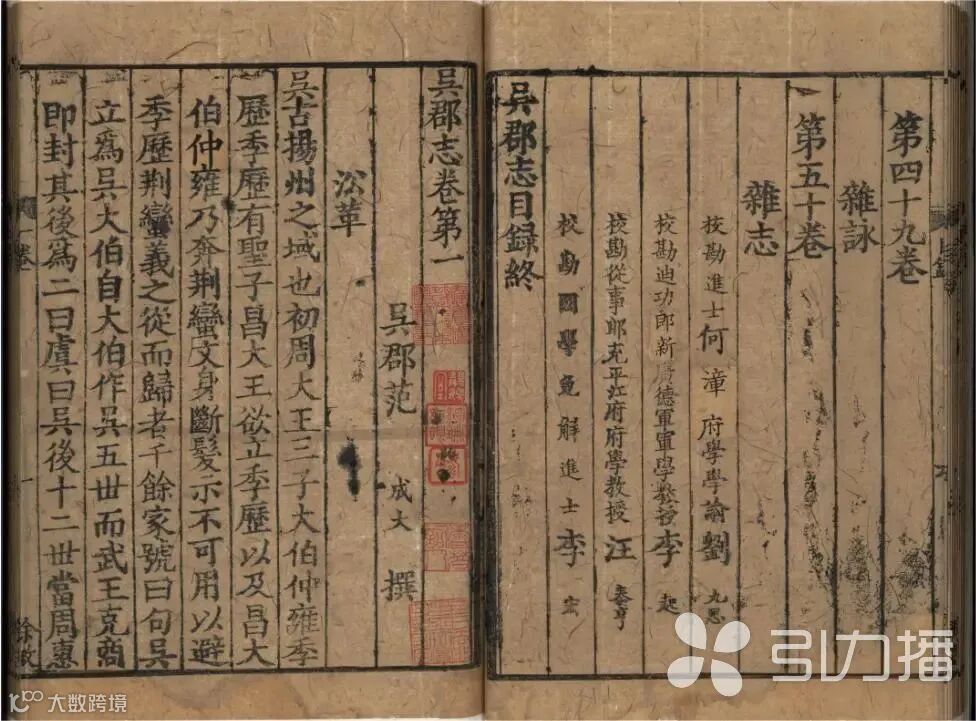 第四十九卷
雜詠
第五十卷
雜志
校勘進士何漳 府學學諭劉九思
校勘迪功郎新廣德軍軍學教授李起
校勘從事郎充平江府府學教授汪泰亨
校勘國學免解進士李宏
吳郡志目録終
吳郡志卷第一
吳郡范成大撰
㳂革
吳古揚州之域也初周大王三子大伯仲雍季
歷季歷有聖子昌大王欲立季歷以及昌大
伯仲雍乃奔荆蠻文身斷髮示不可用以避
季歷荆蠻義之從而歸者千餘家號曰句吳
立爲吳大伯自大伯作吳五世而武王克商
即封其後爲二曰虞曰吳後十二世當周惠
引力播
大数跨境